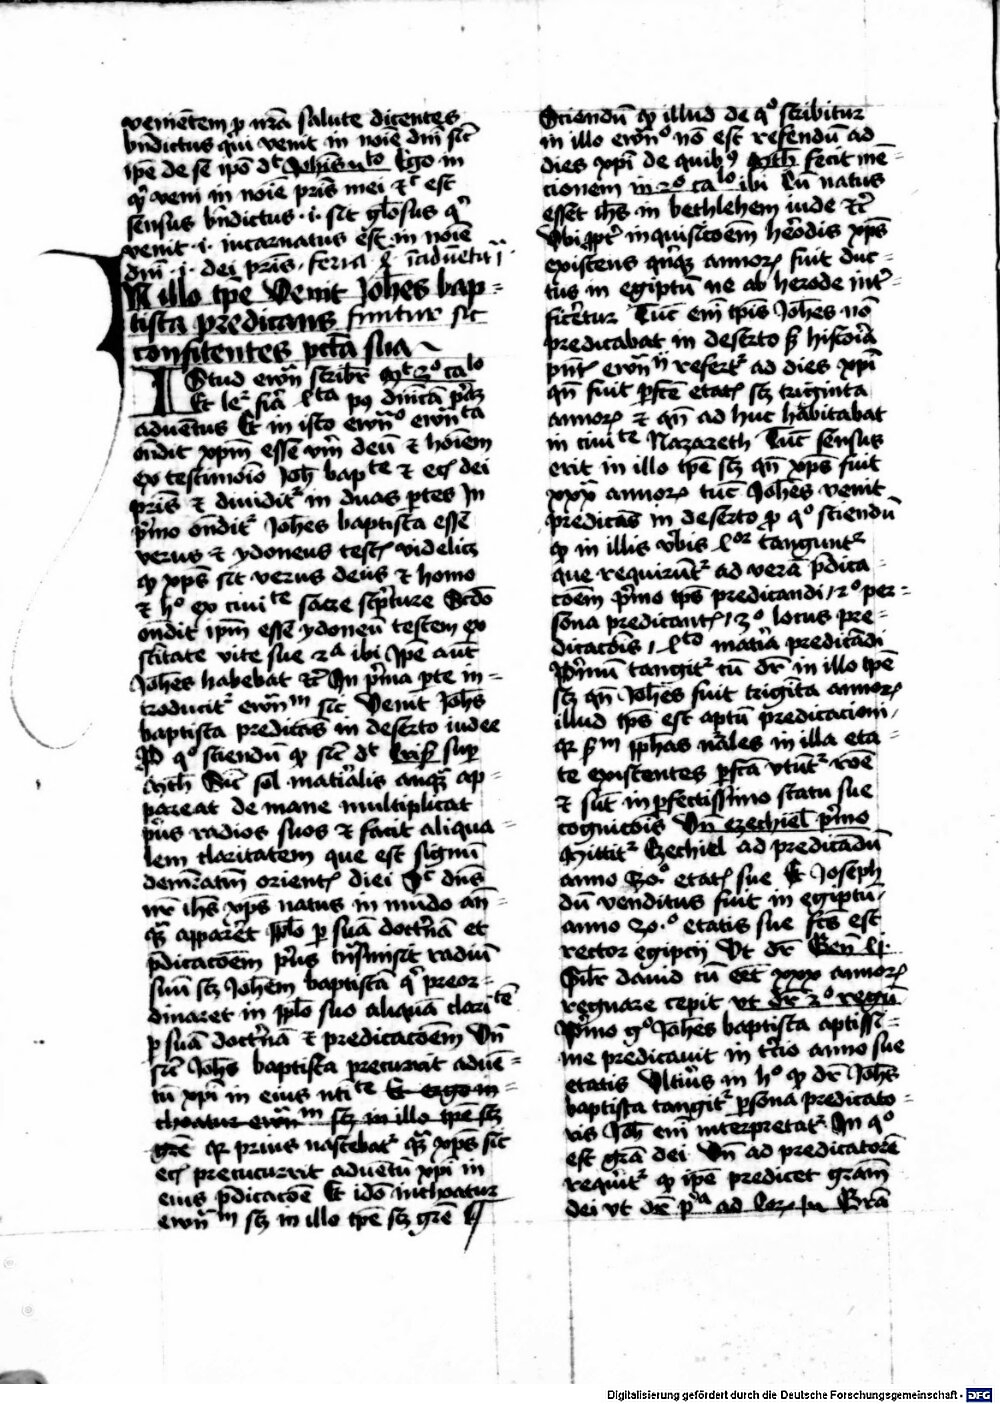 venientē p nrā salute dicentes
bn̄dictus qui venit in noīe dnī sic̄
ipē de se ipō dt Johīs vto Ego in
qͥ veni in noīe pris̄ mei ⁊c̄ est
sensus bn̄dictus · i · sit gl̄osus qͥ
venit · i · incarnatus est in noīe
dnī · i · dei pris̄ · feria
N illo tpē Venit Joh̄es bap-
tista predicans finitur sic
confitentes pctā sua
Stud ewn̄ scribr̄ mt 3o calo
aduentus Et in isto ewn̄o
on̄dit xpm̄ esse vm̄ deū ⁊ hoīem
ex testimoīo Joh̄ bapte ⁊ dei
pris̄ ⁊ diuiditr in duas ptes In
pͥmo on̄ditr Joh̄es baptista esse
verus ⁊ ydoneus testis videlicet
qp xps̄ sit verus deus ⁊ homo
⁊ ho ex sacre scpture Scdo
on̄dit ipm̄ esse ydoneū testem ex
scītate vite sue 2a ibi Ipe aut̄
Joh̄es habebat ⁊c̄ In pͥma pte in-
troducitr ewn̄m sic Venit Joh̄s
baptista predicās in deserto iudee
Ad qo sciendū qp sic̄ dt Crisos sup
Mth̄ Sic̄ sol matīalis anqȝ ap-
pareat de mane multiplicat
pͥus radios suos ⁊ facit aliqua-
lem claritatem que est signū
orientis diei Sic dn̄s
nr̄ ih̄s xps̄ natus in mūdo an-
qȝ apparēt pplō p suā doctͥnā et
pͥdicacōem pͥus tn̄smisit radiū
suū scȝ Joh̄em baptistā qͥ preor-
dinaret in pplō suo aliquā claritē
p suā doctͥnā ⁊ predicacōem Vn̄
sic̄ Joh̄s baptista precurrit aduē-
tū xpī in eius Et ergo in-
choatur ewn̄m scȝ in illo tpē scȝ
grē qr prius nascebatr qȝ xps̄ sic
ec̄ precucurrit aduentū xpī in
eius pͥdicacōe Et idō inchoatur
ewn̄m scȝ in illo tpē scȝ grē
Sciendū qp illud de qo scribitur
in illo ewn̄o nō est refendū ad
dies xpī de quibȝ Mth̄ fecit mē-
cionem in 2o calo ibi Cū natus
esset ih̄s in bethlehem iude ⁊c̄
Vbi ppt̄ inquisicōem herodis xps̄
existens qn̄qȝ annoȝ fuit duc-
tus in egiptū ne ab herode intͥ-
ficeretur Tūc enī tpis̄ Joh̄es nō
predicabat in deserto sȝ historia
pn̄t ewn̄ii refertr ad dies xpī
qn̄ fuit pfcē etatis scȝ triginta
annoȝ ⁊ qn̄ ad huc habitabat
in ciuite Nazareth Tūc sensus
erit in illo tpē scȝ qn̄ xps̄ fuit
xxx annoȝ tūc Joh̄es venit
predicās in deserto pro qo sciendū
qp in illis vͥbis 4or tanguntr
que requirūtr ad verā pͥdica-
cōem pͥmo tps predicandi / 2o per-
sona predicantis / 3o locus pre-
dicacōis / 4to matīa predicādi
Pͥmū tangitr cū dr̄ in illo tpē
scȝ qn̄ Joh̄es fuit trigīta annoȝ
illud tps est aptū predicacioni /
qr pͥphas nāles in illa eta-
te existentes pfcā vtūtr rōe
⁊ sūt in pfectissimo statu sue
cognicōis Vn̄ ezechiel pͥmo
Mittitr Ezechiel ad predicādū
anno 30o etatis sue Et Joseph
dū venditus fuit in egiptū
anno 30o etatis sue fcs̄ est
rector egipcij Vt dr̄ Gen̄ 41
Silr̄ dauid cū eēt xxx annoȝ
regnare cepit vt dr̄ 2o regū
Pͥmo go Joh̄es baptista aptissi-
me predicauit in tͥcio anno sue
etatis Vltius in ho qp dr̄ Joh̄s
baptista tangitr psona predicato-
ris Joh̄ enī interpretatr In qo
est grā dei Vn̄ ad predicatorē
requiritr qp ipē predicet grām
dei vt dr̄ pͥa ad Cor Grā
Digitalisierung gefördert durch die Deutsche Forschungsgemeinschaft - DFG